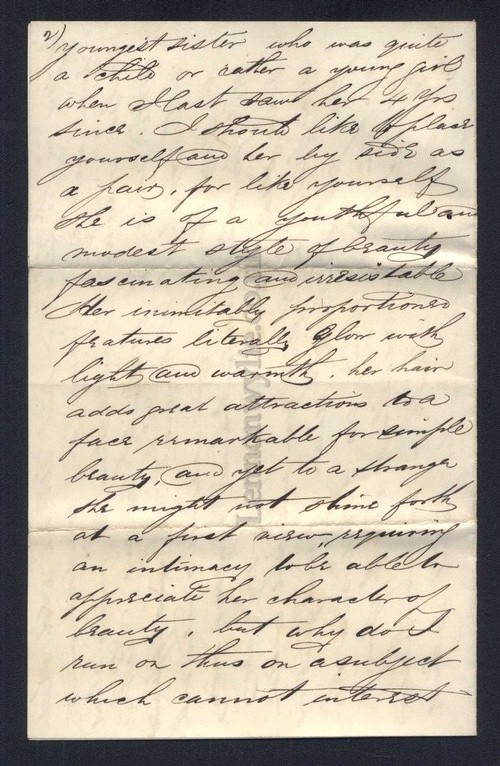 2)
youngest sister who was quite
a child or rather a young girl
when I last saw her 4 Yrs
since. I should like to place
yourself and her by side as
a pair, for like yourself
she is of a youthful and
modest style of beauty
fascinating and irresistable
Her inimitably proportioned
features literally glow with
light and warmth, her hair
adds great attractions to a
face remarkable for simple
beauty, and yet to a stranger
she might not shine forth
at a first view, requiring
an intimacy to be able to
appreciate her character of
beauty, but why do I
run on thus on a subject
which cannot interest